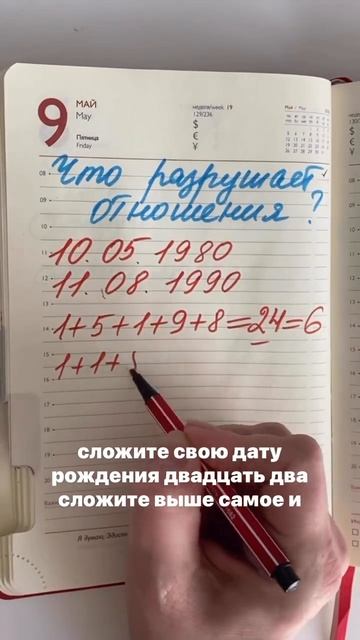 9
МАЙ
May
Пятница
Friday
неделя/week 19
129/236
$
€
¥
Май / May
08
Что разрушает
отношения?
09
10
11
10.05.1980
12
11.08.1990
13
14
1+5+1+9+8=24=6
15
1+1+
16
сложите свою дату
рождения двадцать два
сложите выше самое и
Я думаю,